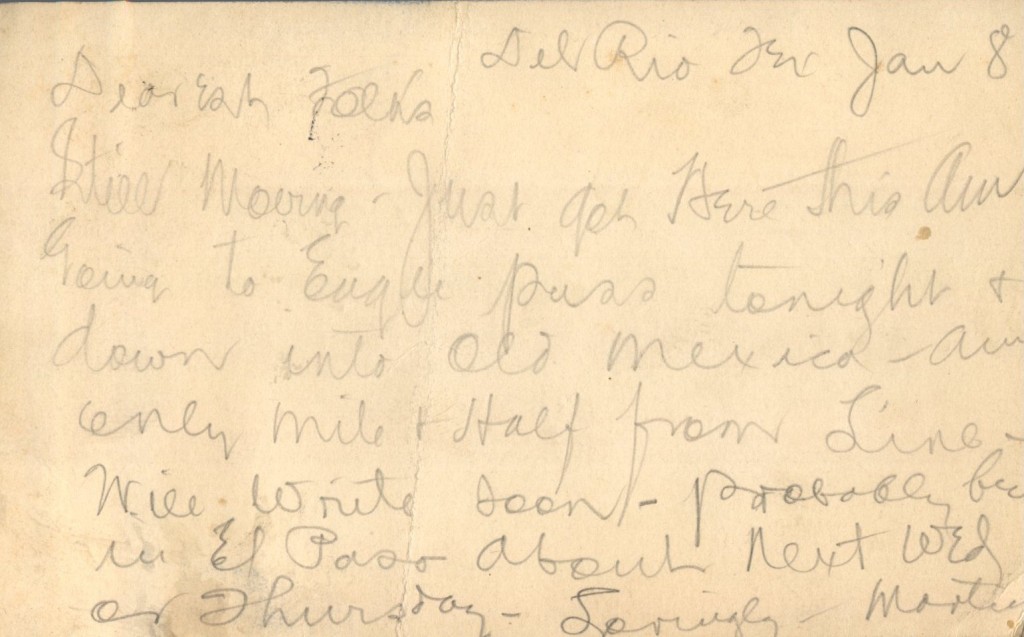 Del Rio Tex Jan 8
Dearest Folks
Still Moving - Just got Here this Am
Going to Eagle pass tonight +
down into Old Mexico - Am
only mile + Half from Line -
Will Write soon - probably be
in El Paso about Next Wed
or Thursday - Lovingly - Martin